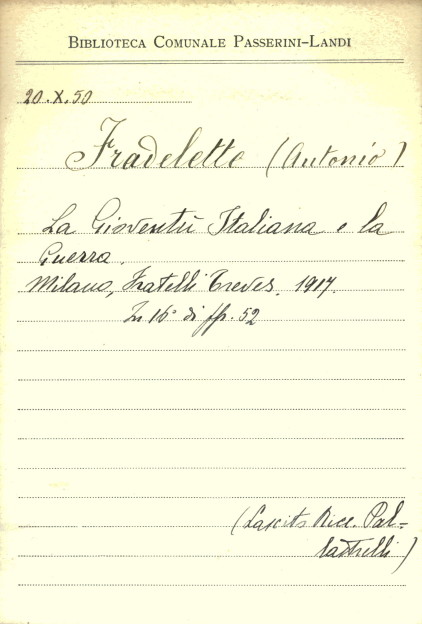 BIBLIOTECA COMUNALE PASSERINI-LANDI
20.X.50
Fradeletto (Antonio)
La Gioventù Italiana e la
Guerra.
Milano, Fratelli Treves, 1917.
In 16° di pp. 52
(Lascito Nice. Pal=
lastrelli)